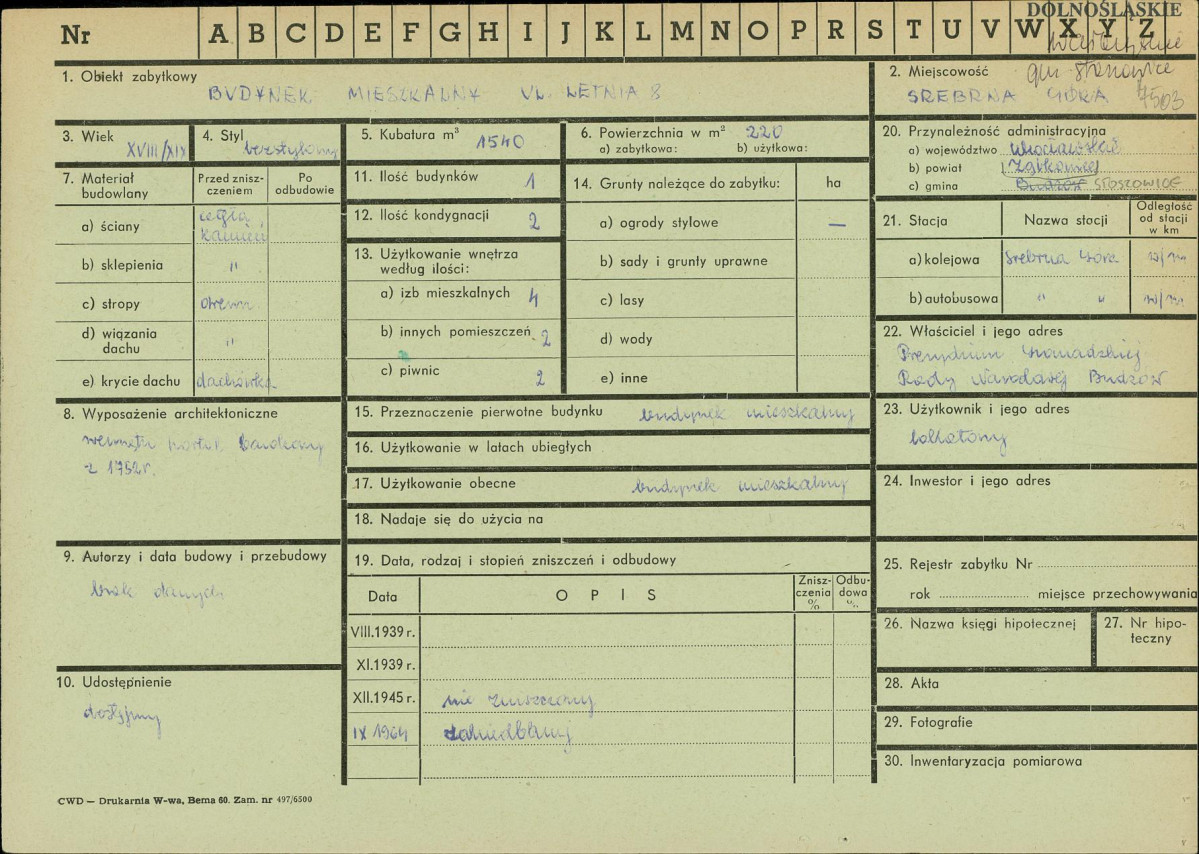 DOLNOŚLĄSKIE
Nr A B C D E F G H I J K L M N O P R S T U V W X Y Z
gm. Stoszowice
7503
1. Obiekt zabytkowy
BUDYNEK MIESZKALNY UL. LETNIA 8
2. Miejscowość
SREBRNA GÓRA
3. Wiek
XVIII/XIX
4. Styl
bezstylowy
5. Kubatura m³ 1540
6. Powierzchnia w m² 220
a) zabytkowa: b) użytkowa:
20. Przynależność administracyjna
a) województwo Wrocławskie
b) powiat Ząbkowice
c) gmina Budzów STOSZOWICE
7. Materiał budowlany
Przed zniszczeniem
Po odbudowie
a) ściany cegła
kamień
b) sklepienia "
c) stropy drewn.
d) wiązania dachu "
e) krycie dachu dachówka
11. Ilość budynków 1
12. Ilość kondygnacji 2
13. Użytkowanie wnętrza według ilości:
a) izb mieszkalnych 4
b) innych pomieszczeń 2
c) piwnic 2
14. Grunty należące do zabytku: ha
a) ogrody stylowe —
b) sady i grunty uprawne
c) lasy
d) wody
e) inne
21. Stacja
Nazwa stacji
Odległość od stacji w km
a) kolejowa Srebrna Góra
b) autobusowa " "
22. Właściciel i jego adres
Prezydium Gromadzkiej
Rady Narodowej Budzów
8. Wyposażenie architektoniczne
wewnątrz portal
z 1752r.
15. Przeznaczenie pierwotne budynku budynek mieszkalny
16. Użytkowanie w latach ubiegłych
17. Użytkowanie obecne budynek mieszkalny
18. Nadaje się do użycia na
23. Użytkownik i jego adres
lokatorzy
24. Inwestor i jego adres
9. Autorzy i data budowy i przebudowy
brak danych
19. Data, rodzaj i stopień zniszczeń i odbudowy
Data
OPIS
Zniszczenia %
Odbudowa %
VIII.1939 r.
XI.1939 r.
XII.1945 r. nie zniszczony
IX 1964 zaniedbany
10. Udostępnienie
dostępny
25. Rejestr zabytku Nr
rok miejsce przechowywania
26. Nazwa księgi hipotecznej
27. Nr hipoteczny
28. Akta
29. Fotografie
30. Inwentaryzacja pomiarowa
CWD — Drukarnia W-wa, Bema 60. Zam. nr 497/6500